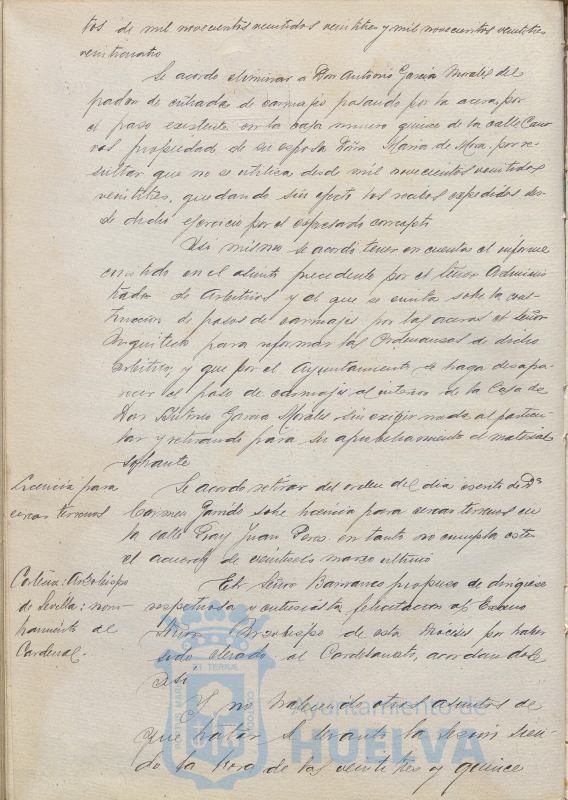 tos de mil novecientos veintidos veintitres y mil novecientos veintitres
veinticuatro
Se acordo eliminar a Don Antonio Garcia Morales del
padron de entradas de carruajes pasando por la acera, por
el paso existente en la casa numero quince de la calle
propiedad de su esposa Doña Maria de Mora, por re-
sultar que no se utiliza desde mil novecientos veintidos
veintitres, quedando sin efecto los recibos expedidos des-
de dicho ejercicio por el expresado concepto
Asi mismo se acordó tener en cuenta el informe
emitido en el asunto precedente por el Señor Adminis
trador de Arbitrios y el que se emita sobre la cons-
truccion de pasos de carruajes por las aceras el Señor
Arquitecto para reformar las Ordenanzas de dicho
arbitrio, y que por el Ayuntamiento se haga desapa-
recer el paso de carruajes al interior de la Casa de
Don Antonio Garcia Morales sin exigir nada al particu-
lar y retirando para su aprovechamiento el material
sobrante
Licencia para
cercar terrenos
Se acordo retirar del orden del dia escrito de Dª
Carmen Garrido sobre licencia para cercar terrenos en
la calle Fray Juan Perez en tanto no cumpla este
el acuerdo de veintiseis marzo ultimo
Cortesia: Arzobispo
de Sevilla: nom-
bramiento de
Cardenal.
El Señor Barranco propuso de dirigiese
respetuosa y entusiasta felicitacion al Excmo
Señor Arzobispo de esta Diocesis por haber
sido elevado al Cardenalato, acordandose
asi
Y no habiendo otros asuntos de
que tratar se levantó la sesion sien-
do la hora de las veintitres y quince
Ayuntamiento de
HUELVA